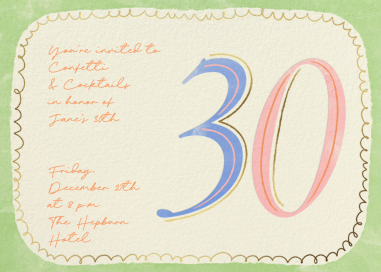 You're invited to
Confetti
& Cocktails
in honor of
Jane's 30th
Friday,
December 29th
at 8 pm
The Hepburn
Hotel
30